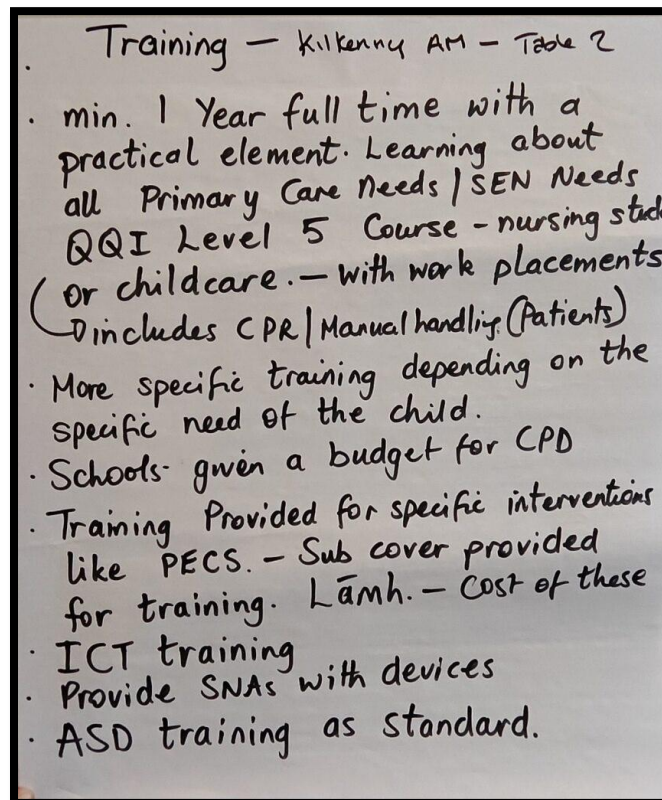 Training – Kilkenny AM – Table 2
· min. 1 Year full time with a
practical element. Learning about
all Primary Care needs / SEN Needs
QQI Level 5 Course – nursing stud
or childcare. – with work placements
includes CPR / Manual handling (Patients)
· More specific training depending on the
specific need of the child.
· Schools- given a budget for CPD
· Training Provided for specific interventions
like PECS. – Sub cover provided
for training. Lāmh. – Cost of these
· ICT training
· Provide SNAs with devices
· ASD training as standard.